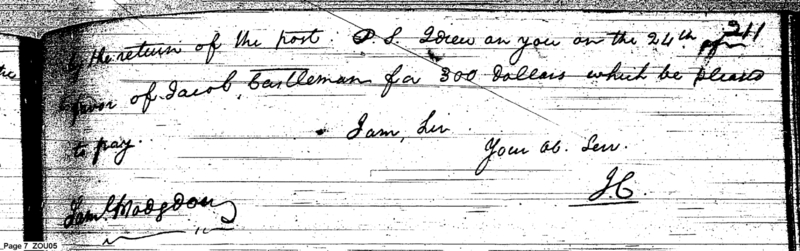 by the return of the post. P.S. I drew on you on the 24th 211
favor of Jacob Castleman for 300 dollars which be pleased
to pay.
I am, Sir
Your Ob. Serv.
J.C.
Saml. Hodgdon
Page 7 ZOU05